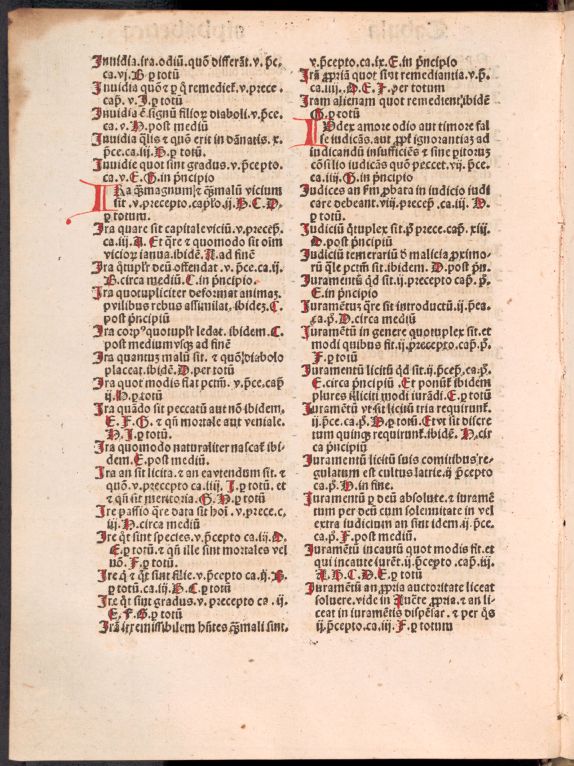 Inuidia.ira.odiū.quō differāt.v.p̄c.
ca.vj.B.ꝑ totū
Inuidia quō ꝫ ꝑ q̄ remedieť.v.prece.
cap̄.v.I.ꝑ totū
Inuidia ē signū filioꝝ diaboli.v.p̄ce.
ca.v.H.post mediū
Inuidia q̄lis ꝫ quō erit in dānatis.v.
p̄ce.ca.iij.H.ꝑ totū.
Inuidie quot sint gradus.v.p̄cepto.
ca.v.E.G.in p̄ncipio
IRa q̄ꝫmagnum ꝫ q̄ꝫmalū vicium
sit.v.precepto.capl̄o.ij.B.C.D.
ꝑ totum.
Ira quare sit capitale viciū.v.precep̄.
ca.iij.A. Et q̄re ꝫ quomodo sit oīm
vicioꝝ ianua.ibidē.A.ad finē
Ira q̄tupl'r deū offendat.v.p̄ce.ca.ij.
B.circa mediū.C.in p̄ncipio.
Ira quotupliciter deformat animaꝫ.
ꝑvilibus rebus assimilať.ibideꝫ.C.
post p̄ncipiū
Ira corpꝰ quotupl'r ledat.ibidem.C.
post medium vsqꝫ ad finē
Ira quantuꝫ malū sit.ꝫ quō diabolo
placeat.ibidē.D.per totū
Ira quot modis fiat pctm̄.v.p̄ce.cap̄
ij.H.ꝑ totū
Ira quādo sit peccatū aut nō ibidem.
E.F.G.ꝫ qn̄ mortale aut veniale.
H.I.ꝑ totū.
Ira quomodo naturaliter nascať ibi-
dem.E.post mediū.
Ira an sit licita.ꝫ an eavtendum sit.ꝫ
quō.v.precepto ca.iiij.I.ꝑ totū.et
ꝫ qn̄ sit meritoria.G.H.ꝑ totū
Ire passio q̄re data sit hoī.v.prece.c.
iij.H.circa mediū
Ire q̄t sint species.v.p̄cepto ca.ij.D.
E.ꝑ totū.ꝫ qn̄ ille sint mortales vel
nō.F.ꝑ totū.
Ire q̄ ꝫ q̄t sint filie.v.p̄cepto ca.ij.B.
ꝑ totū.ca.iij.B.C.ꝑ totū
Ire q̄t sint gradus.v.precepto ca.ij.
E.F.G.ꝑ totū
Irā irremissibilem hn̄tes q̄ꝫmali sint.
v.p̄cepto.ca.ix.E.in p̄ncipio
Irā ꝓpriā quot sint remediantia.v.p̄.
ca.iiij.D.E.F.per totum
Iram alienam quot remedienť ibidē
G.ꝑ totū
IUdex amore odio aut timore fal
se iudicās.aut ꝓpt' ignorantiaꝫ ad
iudicandū insufficiēs ꝫ sine pitoruꝫ
cōsilio iudicās quō peccet.vij.p̄ce.
ca.iiij.G.in p̄ncipio
Iudices an sm̄ ꝓbata in iudicio iudi
care debeant.viij.precep̄.ca.iij.A.
ꝑ totum.
Iudiciū q̄tuplex sit.p̄ prece.cap̄.xiij.
D.post p̄ncipiū
Iudiciū temerariū d̄ malicia ꝓximo-
rū q̄le pctm̄ sit.ibidem.D.post p̄n.
Iuramentū qd̄ sit.ij.precepto cap̄.p̄.
E.in p̄ncipio
Iuramentuꝫ q̄re sit introductū.ij.p̄ca.
ca.p̄.D.circa mediū
Iuramētū in genere quotuplex sit.et
modi quibus fit.ij.precepto.cap̄.p̄.
F.ꝑ totū
Iuramentū licitū qd̄ sit.ij.p̄cep̄.ca.p̄.
E.circa p̄ncipiū.Et ponunť ibidem
plures illiciti modi iurādi.E.ꝑ totū
Iuramētū vt sit licitū tria requirunť.
ij.p̄ce.ca.p̄.H.ꝑ totū.Et vt sit discre
tum quinqꝫ requirunť.ibidē.H.cir
ca p̄ncipiū
Iuramentū licitū suis comitibus re-
gulatum est cultus latrie.ij p̄cepto
ca.p̄.H.in fine.
Iuramentū ꝑ deū absolute.ꝫ iuramē
tum per deū cum solennitate in vel
extra iudicium an sint idem.ij.p̄ce.
ca.p̄.F.post mediū.
Iuramētū incautū quot modis fit.et
qui incaute iurēt.ij.p̄cepto.cap̄.iij.
A.B.C.D.E.ꝑ totū
Iuramētū an ꝓpria auctoritate liceat
soluere.vide in Auc̄te ꝓpria.ꝫ an li-
ceat in iuramētis dispēsar.ꝫ per q̄s
ij.p̄cepto.ca.iij.F.ꝑ totum